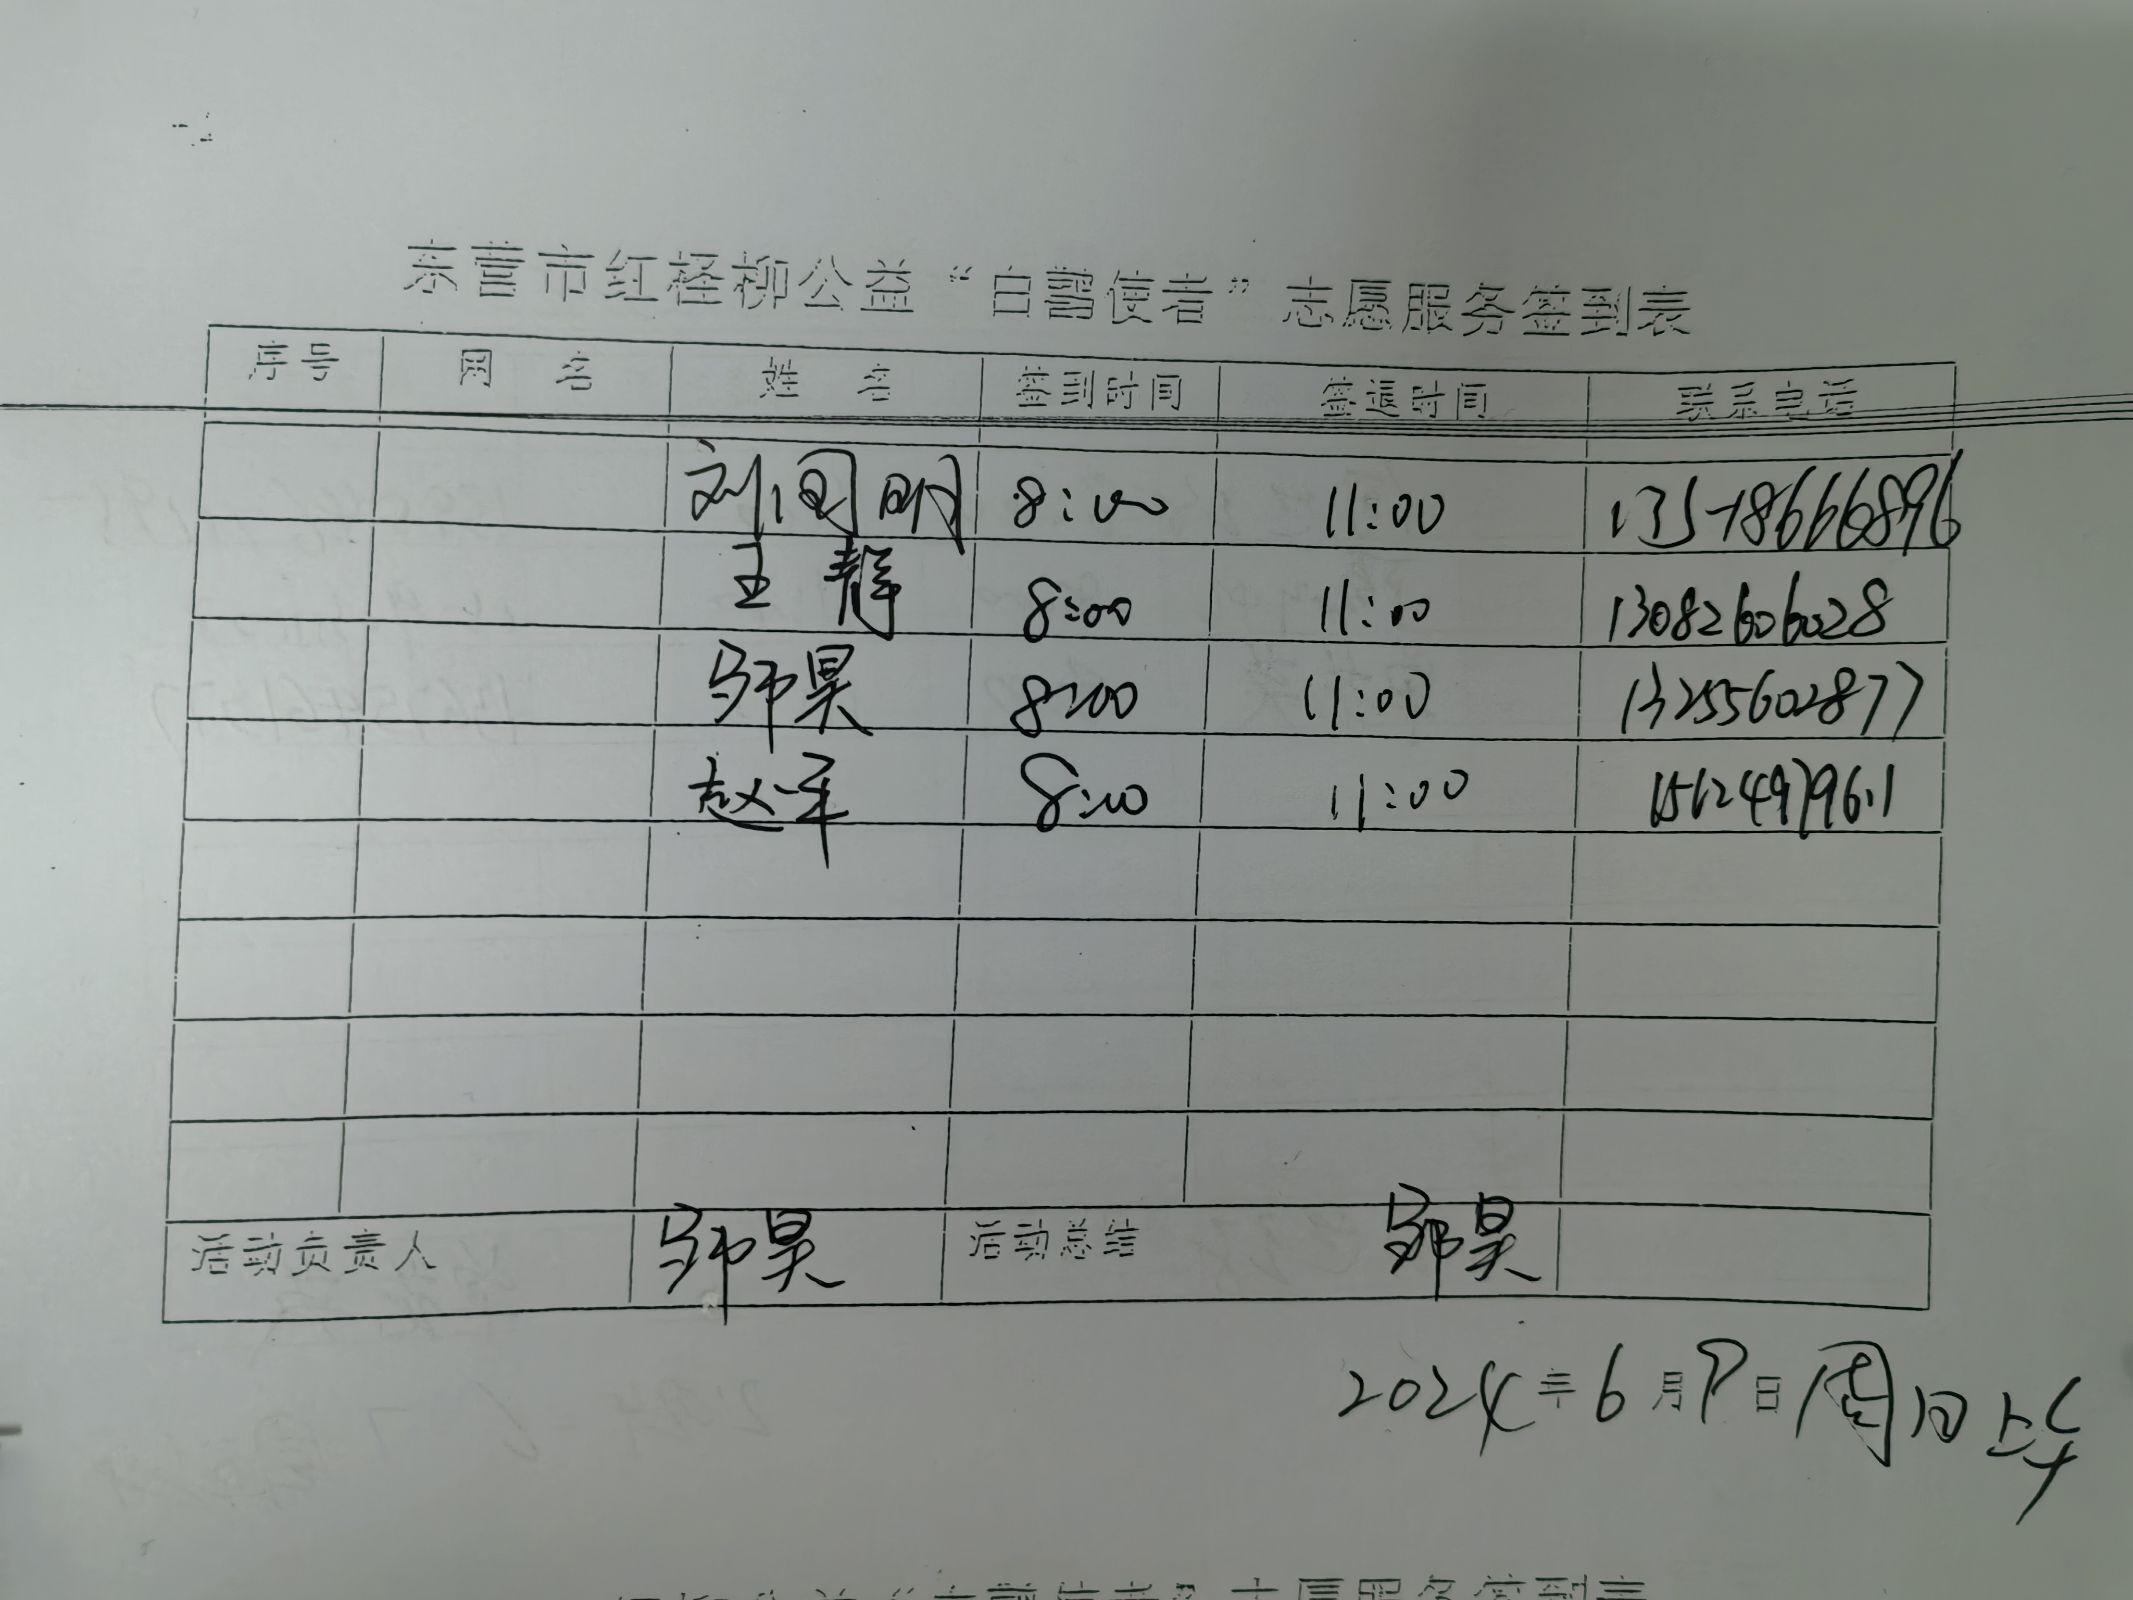 东营市红柽柳公益“白鹭使者”志愿服务签到表
序号 网 名 姓 名 签到时间 签退时间 联系电话
刘国明 8:00 11:00
王静 8:00 11:00 13082606028
昊 8:00 11:00 13255602877
赵军 8:00 11:00 15624979611
活动负责人 昊 活动总结 昊
2024年6月9日周日上午
志愿服务签到表